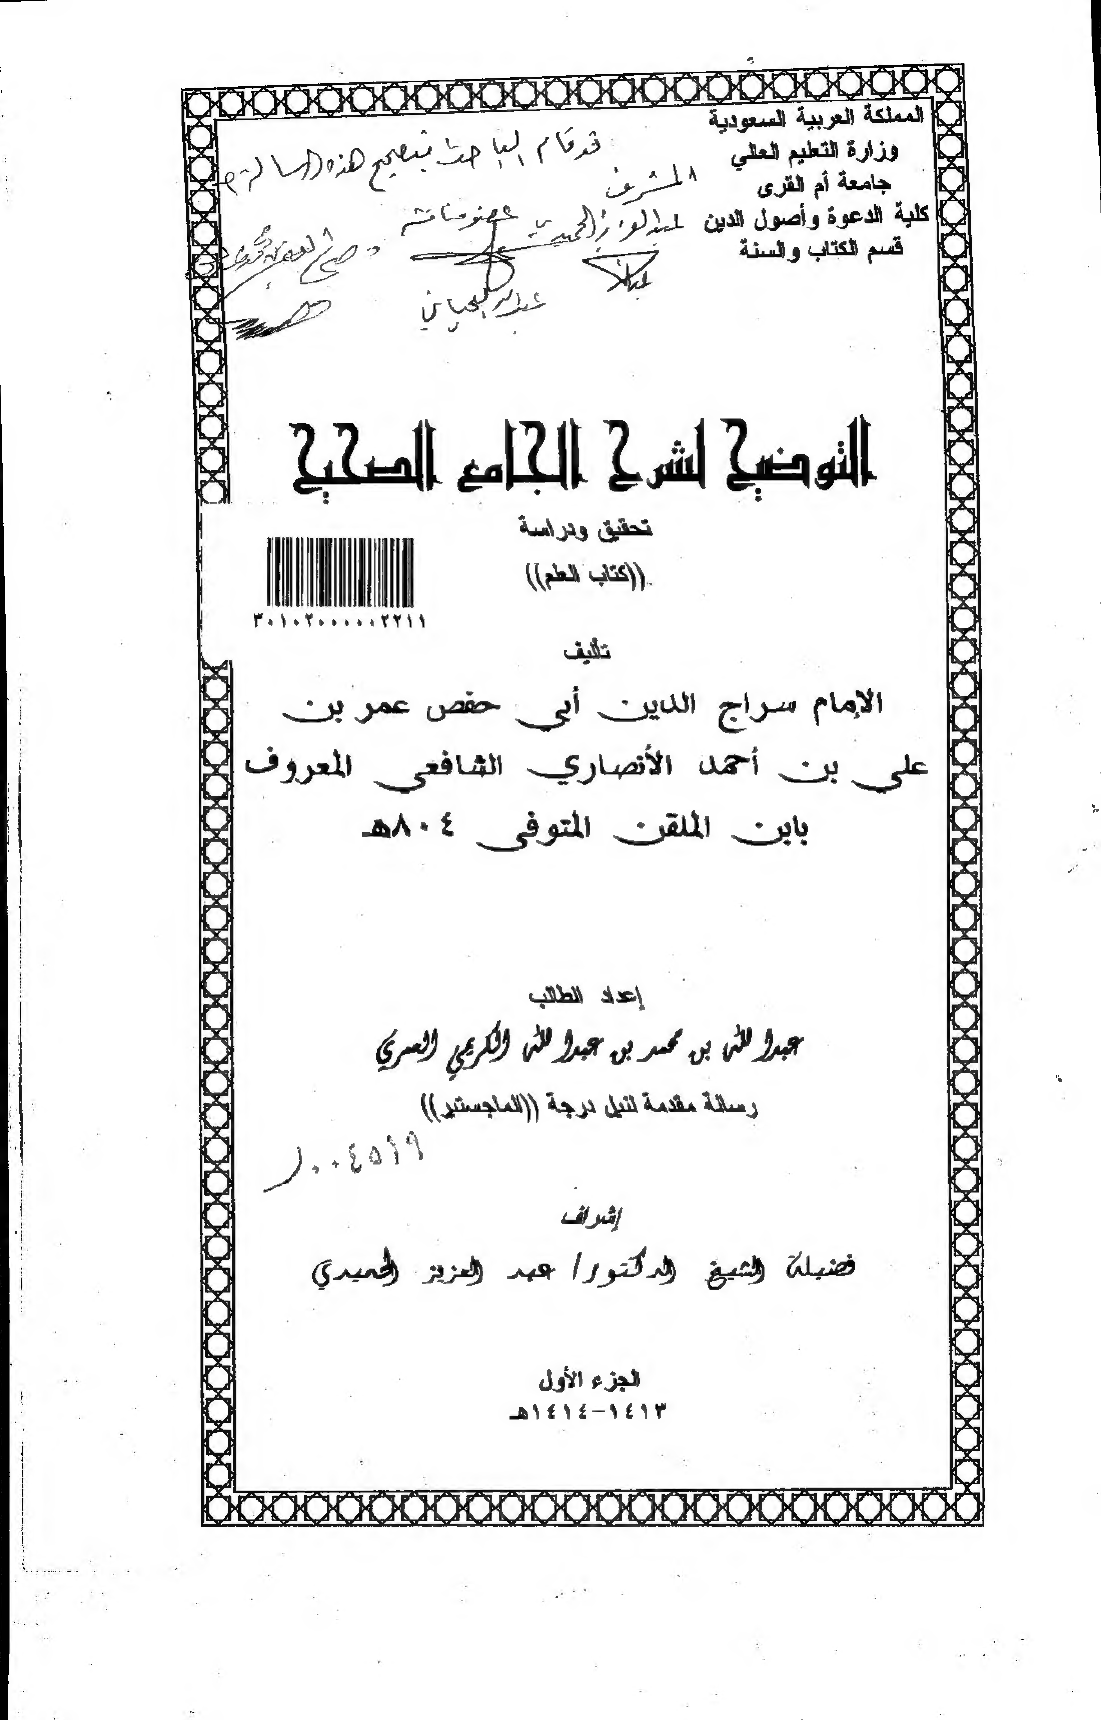 المملكة العربية السعودية
وزارة التعليم العالي
جامعة أم القرى
كلية الدعوة وأصول الدين
قسم الكتاب والسنة
قد قام الباحث بتصحيح هذه الرسالة
المشرف
عبد العزيز الحميدي
عضو مناقشة
التوضيح لشرح الجامع الصحيح
تحقيق ودراسة
((كتاب العلم))
٣٠١٠٢٠٠٠٠٠٢٢١١
تأليف
الإمام سراج الدين أبي حفص عمر بن
علي بن أحمد الأنصاري الشافعي المعروف
بابن الملقن المتوفى ٨٠٤هـ
إعداد الطالب
عبدالله بن محمد بن عبدالله الكريمي العمري
رسالة مقدمة لنيل درجة ((الماجستير))
٠٠٤٥١٩
إشراف
فضيلة الشيخ الدكتور/ عبد العزيز الحميدي
الجزء الأول
١٤١٣-١٤١٤هـ